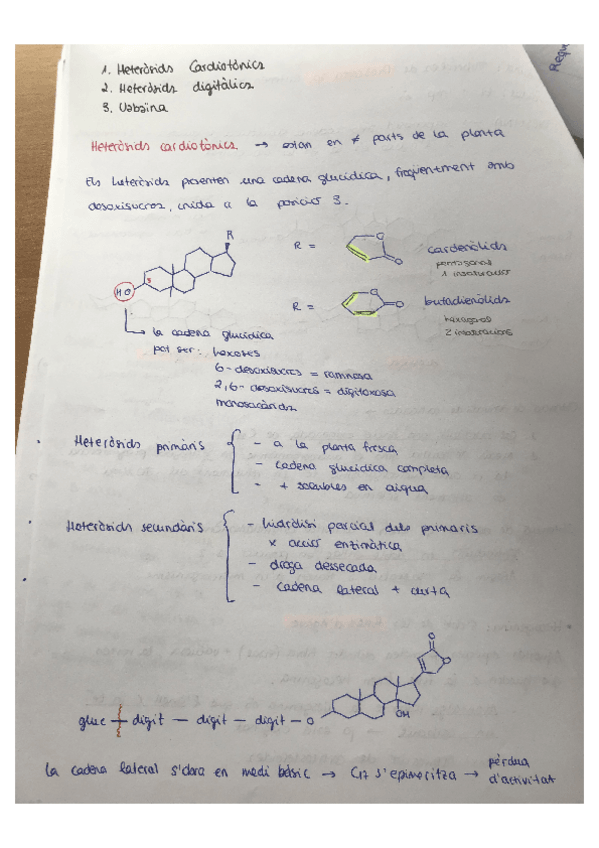 1. Heteròsids Cardiotònics
2. Heteròsids digitàlics
3. Uabaïna
Requ
Heteròsids cardiotònics → estan en ≠ parts de la planta
Els heteròsids presenten una cadena glucídica, freqüentment amb
desoxisucres, unida a la posició 3.
R
HO
3
R =
O
O
cardenòlids
pentagonal
1 insaturació
R =
O
O
butadienòlids
hexàgons
2 insaturacions
la cadena glucídica
pot ser: hexoses
6-desoxisucres = ramnosa
2,6-desoxisucres = digitoxosa
monosacàrids
Heteròsids primàris
- a la planta fresca
- cadena glucídica completa
- + solubles en aigua
Heteròsids secundàris
- hidròlisi parcial dels primaris
x acció enzimàtica
- droga dessecada
- cadena lateral + curta
O
O
OH
gluc — digit — digit — digit — O
la cadena lateral s'obra en medi bàsic → C17 s'epimeritza → pèrdua
d'activitat